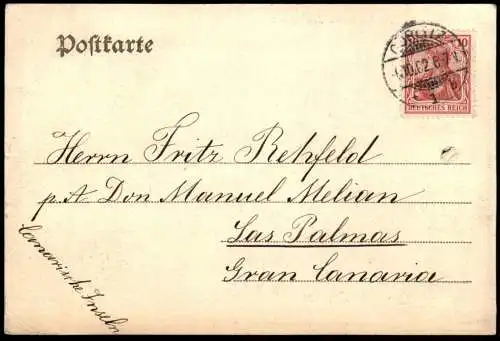 Postkarte
GÖRLITZ
10
DEUTSCHES REICH
Herrn Fritz Rehfeld
p. A. Don Manuel Melian
Las Palmas
Gran Canaria
Canarische Inseln